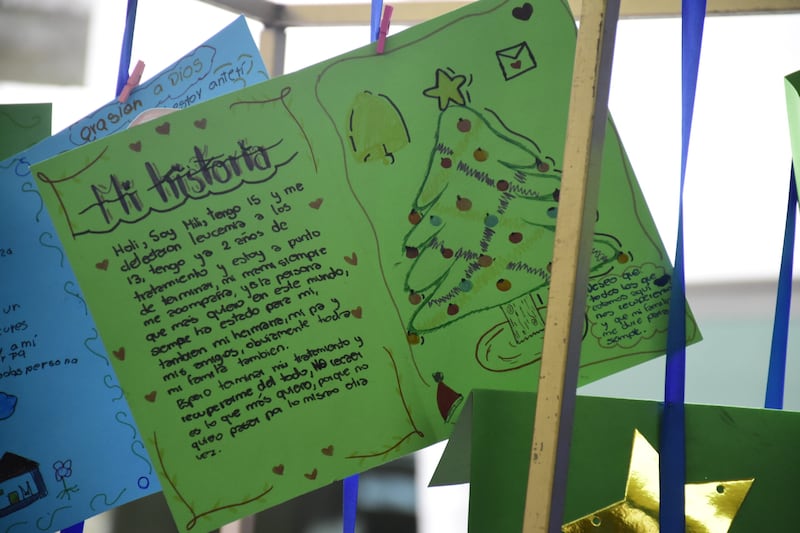 orasion a Dios
estoy ante ti
Mi historia
Holi, soy Mili, tengo 15 y me
detectaron leucemia a los
13, tengo ya 2 años de
tratamiento y estoy a punto
de terminar, mi mami siempre
me acompaña, ya la persona
que más quiero en este mundo,
siempre ha estado para mi,
tambien mi hermano, mi pa y
mis amigos, obviamente toda
mi familia también.
Espero terminar mi tratamiento y
recuperarme del todo, No recaer
es lo que más quiero, porque no
quiero pasar pa lo mismo otra
vez.
Deseo que
todos los que
estamos aquí
nos recuperemos
y que mi familia
me dure para
siempre.
un
y a mi
persona